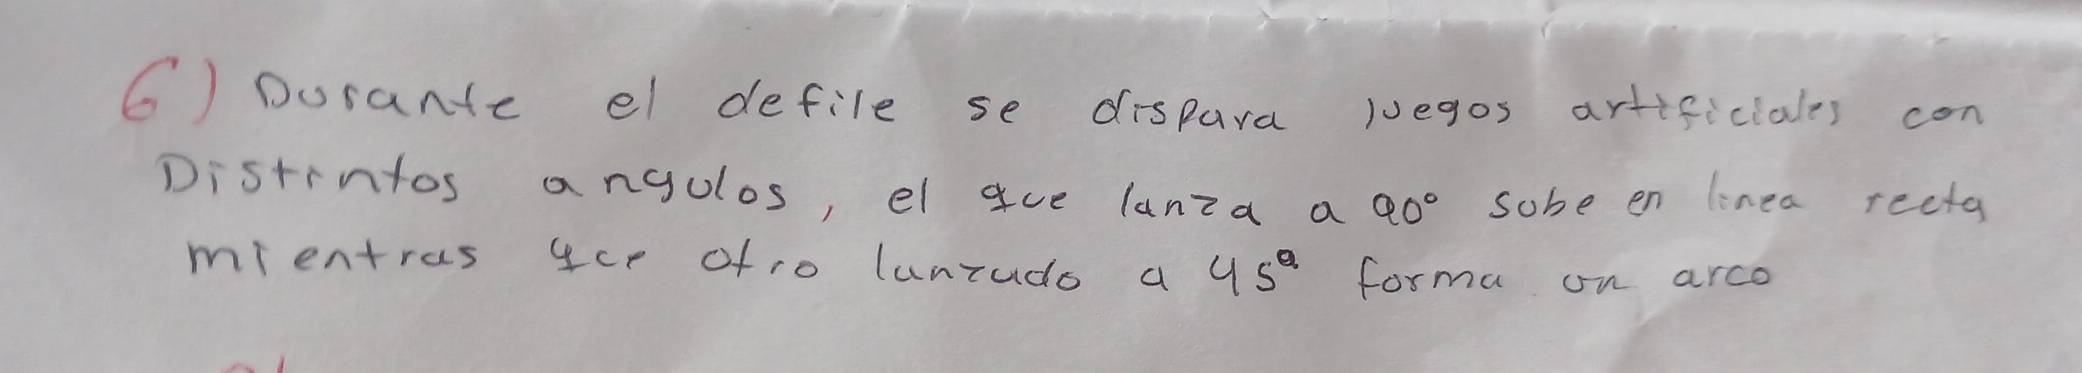 6) Durante el defile se dispara juegos artificiales con
Distintos angulos, el que lanza a 90° sube en linea recta
mientras que otro lanzado a 45° forma un arco